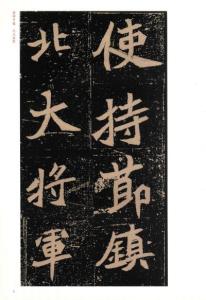 使持節鎮
北大將軍